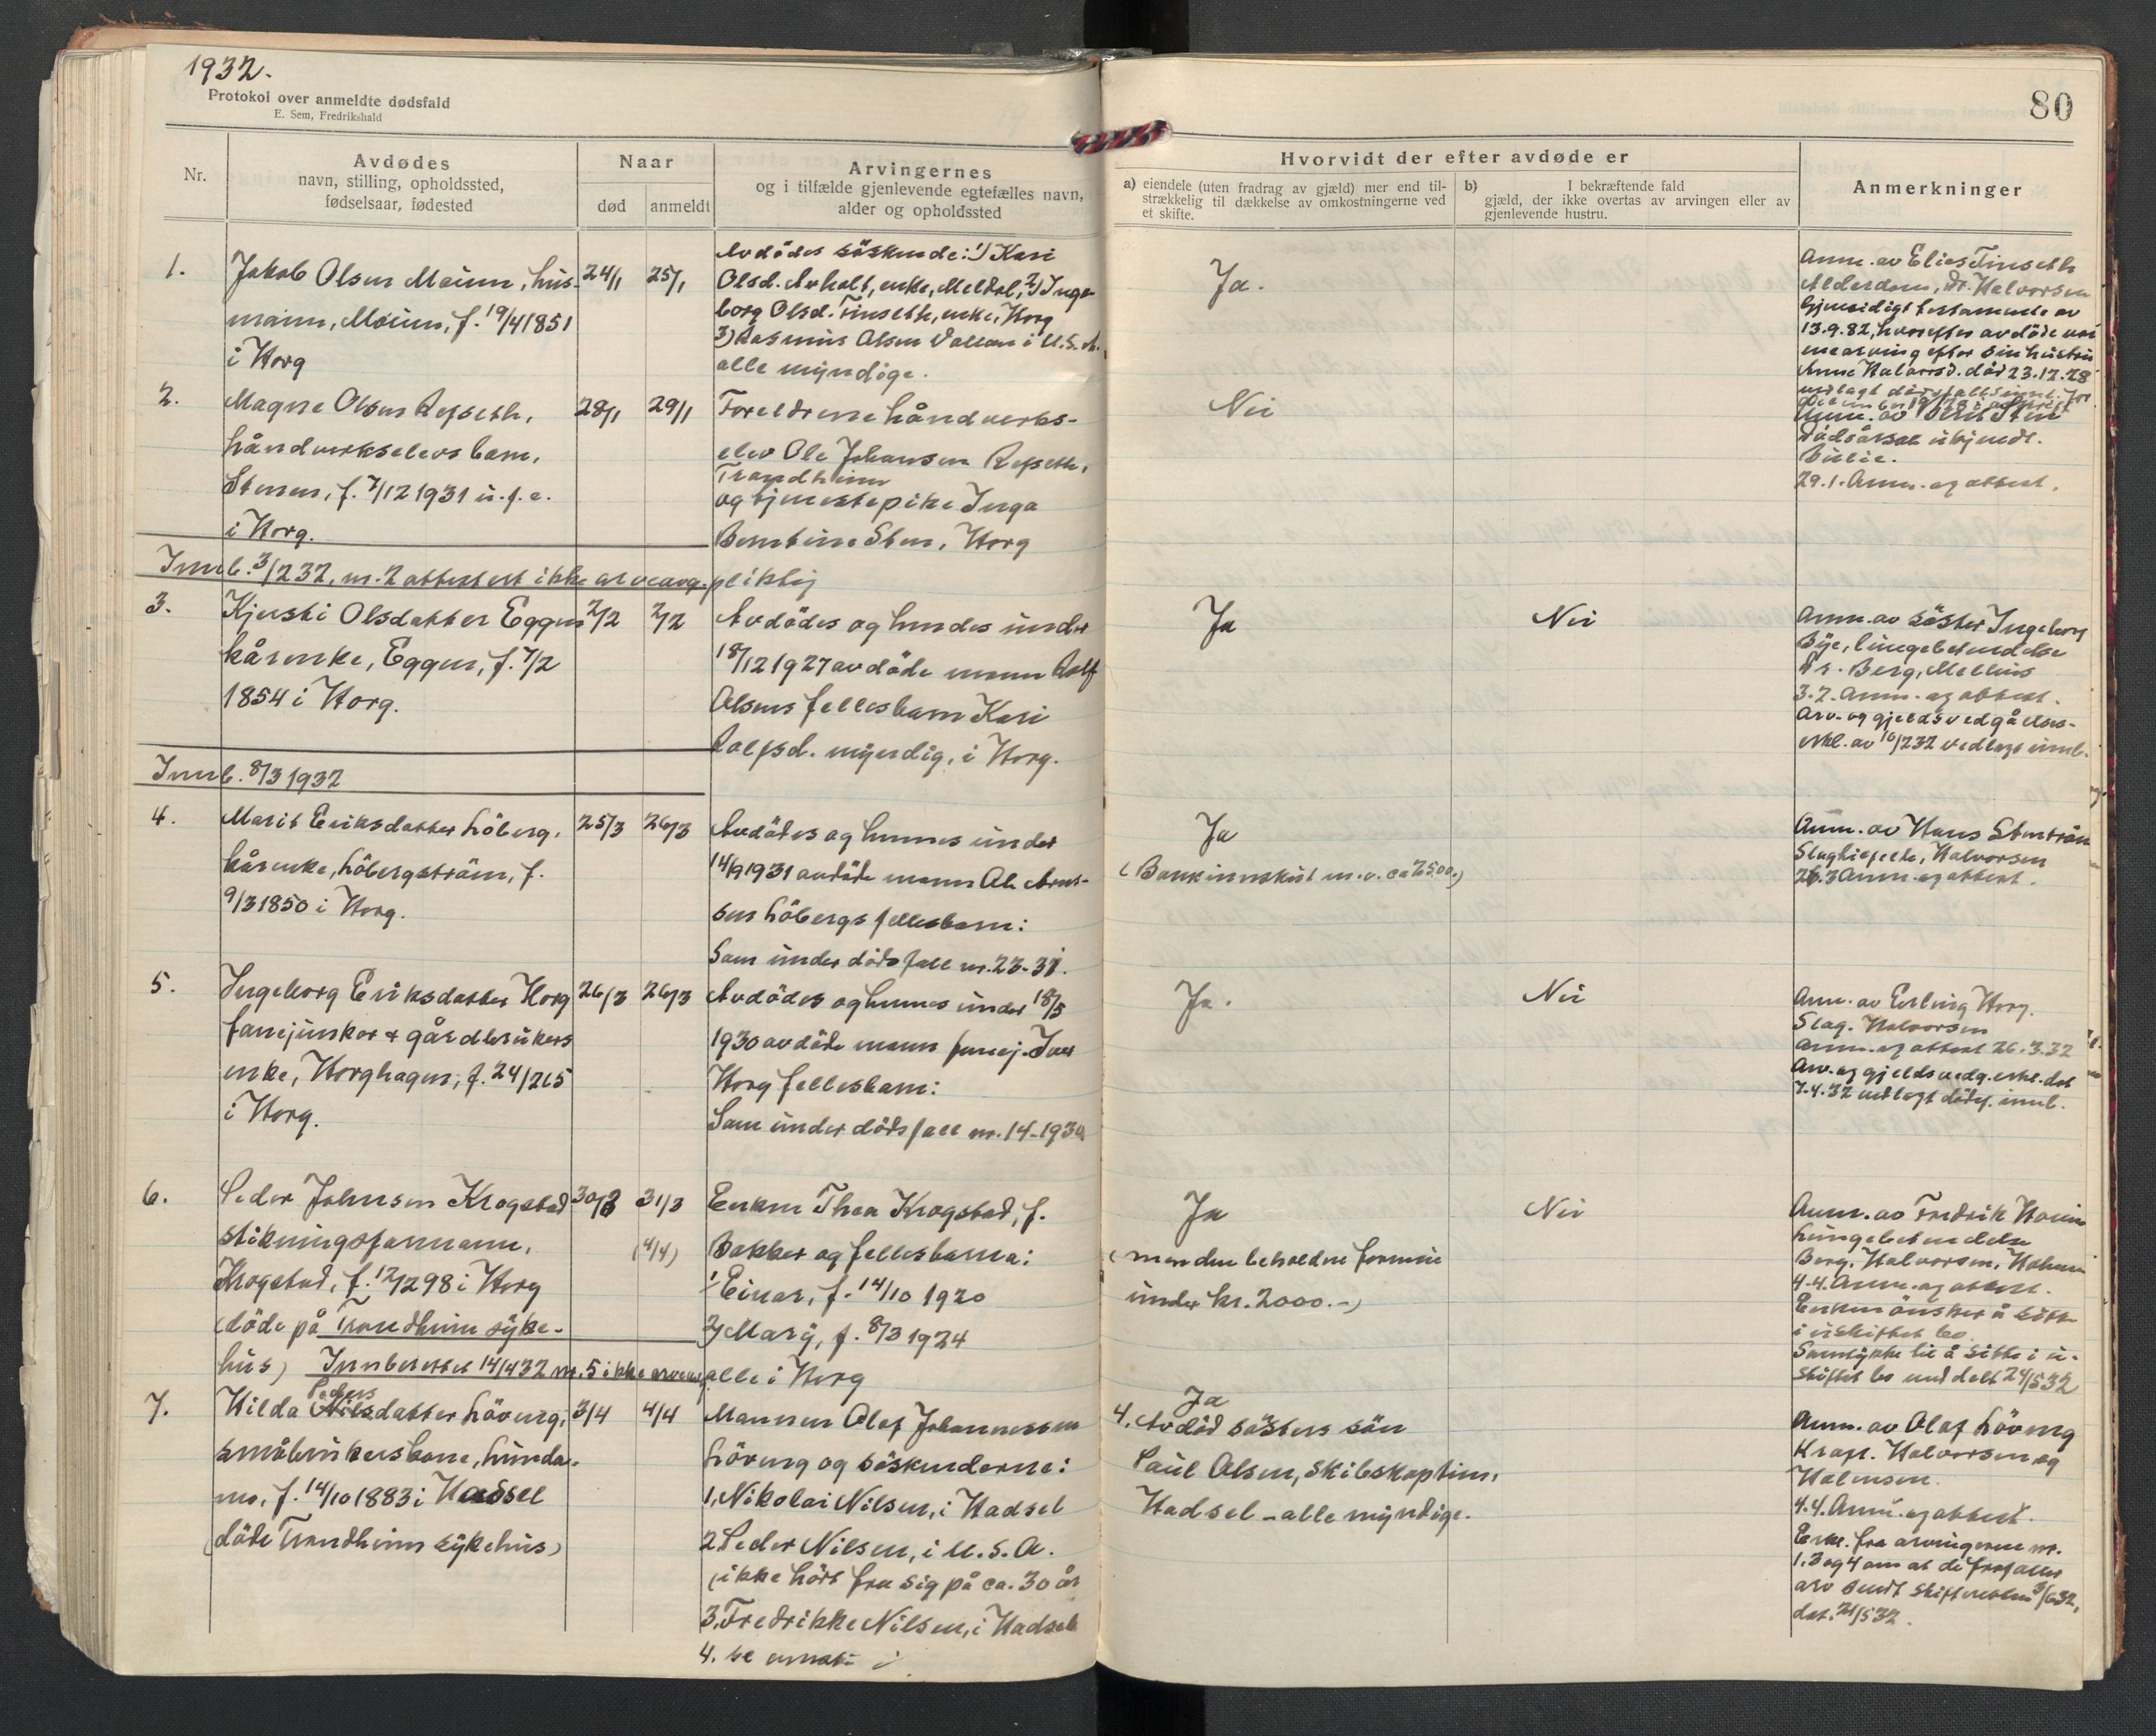 1932.
Protokol over anmeldte dødsfald
E. Sem, Fredrikshald
80
Nr.
Avdødes
navn, stilling, opholdssted,
fødselsaar, fødested
Naar
død
anmeldt
Arvingernes
og i tilfælde gjenlevende egtefælles navn,
alder og opholdssted
Hvorvidt der efter avdøde er
a) eiendele (uten fradrag av gjæld) mer end til-
strækkelig til dækkelse av omkostningerne ved
et skifte.
b) I bekræftende fald
gjæld, der ikke overtas av arvingen eller av
gjenlevende hustru.
Anmerkninger
1.
Jakob Olsen Moum, hus-
mann, Moum, f. 19/4 1851
i Horg
24/1
25/1
Avdödes söskende: 1) Kari
Olsd. Avholt, enke, Meldal, 2) Inge
borg Olsd. Finseth, enke, Horg
3) Rasmus Olsen i U.S.A.
alle myndige.
Ja.
Anm. av Elias Finseth
Alderdom, Dr. Halvorsen
Gjensidigt testamente av
13.9.82, hvorefter avdöde var
enearving efter sin hustru
Anne Halvorsd. död 23.12.28
2.
Magne Olsen Refseth,
håndverkselevs barn,
Stenen, f. 7/12 1931 u.f.e.
i Horg.
28/1
29/1
Foreldrene håndverks-
elev Ole Johansen Refseth,
Trondheim
og tjenestepike Inga
Berntine Sten, Horg
Nei
Dödsårsak ukjendt.
29.1. Anm. og attest.
Innb. 3/2 32, nr. 2 attestert ikke arveavg.pliktig
3.
Kjersti Olsdatter Eggen
kårenke, Eggen, f. 7/2
1854 i Horg.
2/2
2/2
Avdödes og hendes under
18/12 1927 avdöde mann Rolf
Olsens fellesbarn Kari
Rolfsd. myndig, i Horg.
Ja
Nei
Anm. av söster Ingeborg
Bye, lungebetendelse
Dr. Berg, Melhus
3.2. Anm. og attest.
Arv- og gjeldsvedgåelses-
erkl. av 10/2 32 vedlagt innb.
Innb. 8/3 1932
4.
Marit Eriksdatter Löberg,
kårenke, Löbergström, f.
9/3 1850 i Horg.
25/3
26/3
Avdödes og hennes under
14/9 1931 avdöde mann Ole Arnt-
sen Löbergs fellesbarn:
Som under dödsfall nr. 23-31.
Ja
Anm. av Hans
Slagtilfelle, Halvorsen
26.3 Anm. og attest.
5.
Ingeborg Eriksdatter Horg
fanejunker & gårdbrukers
enke, Horghagen, f. 24/2
i Horg.
26/3
26/3
Avdödes og hennes under 18/5
1930 avdöde mann fanej. Iver
Horg fellesbarn:
Som under dödsfall nr. 14-1930
Ja.
Nei
Anm. av Erling Horg.
Slag. Halvorsen
Anm. og attest 26.3.32
Arv. og gjeldsvedg. erkl. dat
7.4.32 vedlagt dödsf. innb.
6.
Peder Johnsen Krogstad
stikningsformann,
Krogstad, f. 12/2 98 i Horg
(döde på Trondheim syke-
hus)
30/3
31/3
(4/4)
Enken Thea Krogstad, f.
Bakken og fellesbarna:
1) Einar, f. 14/10 1920
2) Mary, f. 8/3 1924
alle i Horg
Ja
(men den beholdne formue
under kr. 2000.-)
Nei
Anm. av Fredrik
Lungebetendelse
Berg, Halvorsen,
4.4. Anm. og attest.
Enken önsker å sitte
i uskiftet bo.
Samtykke til å sitte i u-
skiftet bo meddelt 24/5 32
Innberettet 14/4 32 nr. 5 ikke
7.
Peders
Hilda Nilsdatter Lövseng,
småbrukerskone, Lunda-
mo, f. 14/10 1883 i Hadsel
(döde Trondheim sykehus)
3/4
4/4
Mannen Olaf Johannessen
Lövseng og söskenderne:
1. Nikolai Nilsen, i Hadsel
2. Peder Nilsen, i U.S.A.
(ikke hört fra sig på ca. 30 år
3. Fredrikke Nilsen, i Hadsel
4. se
Ja
4. Avdöd sösters sön
Paul Olsen, skibskaptein,
Hadsel - alle myndige.
Anm. av Olaf Lövseng
Kræft. Halvorsen og
Halmsen.
4.4. Anm. og attest.
Erkl. fra arvingerne nr.
1, 3 og 4 om at de frafaller
arv sendt skifteretten 3/6 32,
dat. 21/5 32.